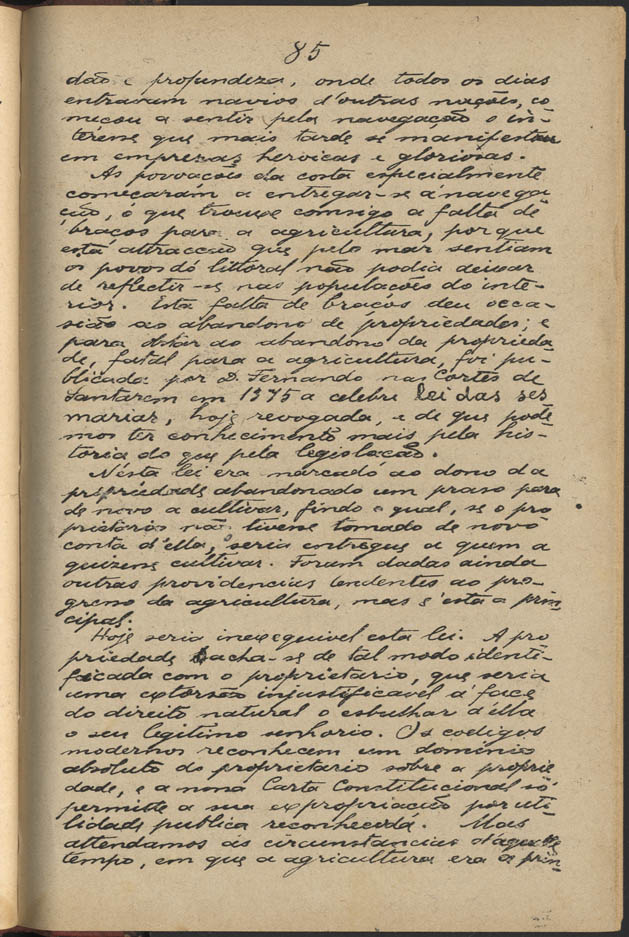 85
dão e profundeza, onde todos os dias
entravam navios d'outras nações, co
meçou a sentir pela navegação o in-
teresse que mais tarde se manifestou
em emprezas heroicas e gloriosas.
As povoações da costa especialmente
começaram a entregar-se á navega
ção, o que trouxe comsigo a falta de
braços para a agricultura, porque
esta attracção que pelo mar sentiam
os povos do littoral não podia deixar
de reflectir-se nas populações do inte-
rior. Esta falta de braços deu occa-
sião ao abandono de propriedades; e
para obstar ao abandono da proprieda
de, fatal para a agricultura, foi pu-
blicada por D. Fernando nas Cortes de
Santarem em 1375 a celebre lei das ses
marias, hoje revogada, e de que pode
mos ter conhecimento mais pela his-
toria do que pela legislação.
Nésta lei era marcado ao dono da
propriedade abandonado um praso para
de novo a cultivar, findo o qual, se o pro
prietario não tivesse tomado de novo
conta d'ella, seria entregue a quem a
quizesse cultivar. Foram dadas ainda
outras providencias tendentes ao pro-
gresso da agricultura, mas é esta a prin-
cipal.
Hoje seria inexequivel esta lei. A pro
priedade acha-se de tal modo identi-
ficada com o proprietario, que seria
uma extorsão injustificavel á face
do direito natural o esbulhar d'ella
o seu legitimo senhorio. Os codigos
modernos reconhecem um dominio
absoluto do proprietario sobre a proprie
dade, e a nossa Carta Constitucional só
permitte a sua expropriação por uti-
lidade publica reconhecida. Mas
attendamos ás circunstancias d'aquelle
tempo, em que a agricultura era a prin-